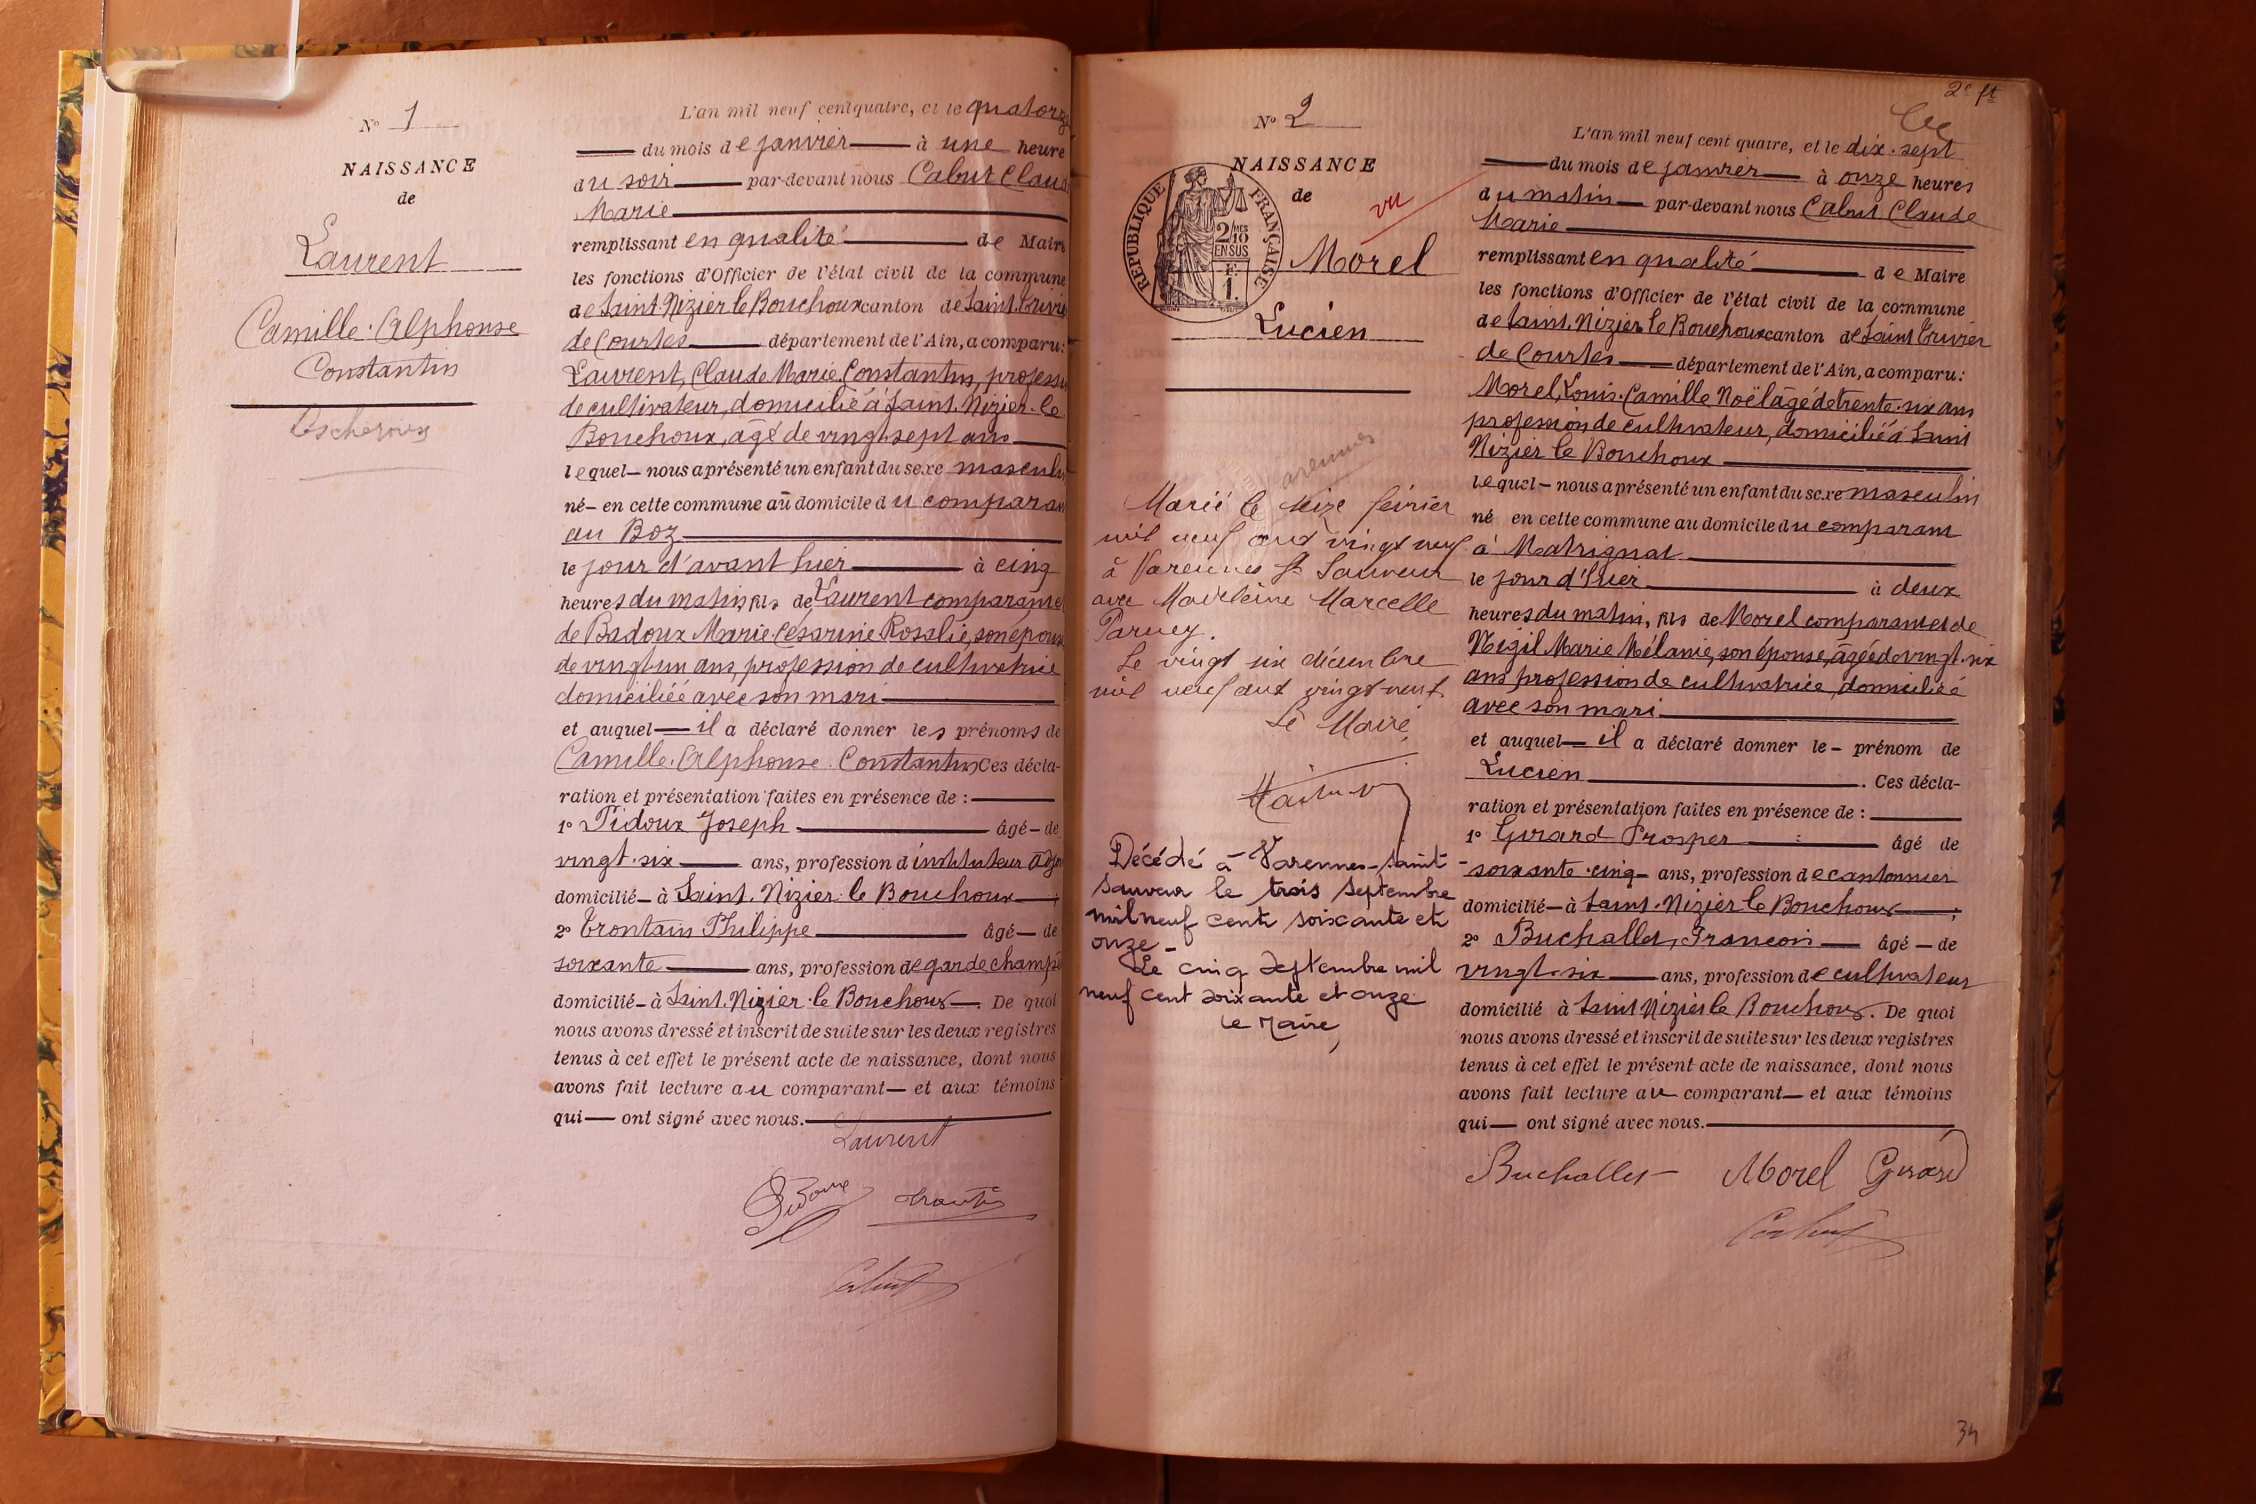 N° 1
NAISSANCE
de
Laurent
Camille Alphonse
Constantin
L'an mil neuf cent quatre, et le quatorze
du mois de janvier à une heure
du soir par-devant nous Cabut Claude
Marie
remplissant en qualité de Maire
les fonctions d'Officier de l'état civil de la commune
de Saint-Nizier le Bouchoux canton de Saint-Trivier
de Courtes département de l'Ain, a comparu:
Laurent, Claude Marie Constantin, profession
de cultivateur, domicilié à Saint-Nizier-le
Bouchoux, âgé de vingt-sept ans
lequel nous a présenté un enfant du sexe masculin
né en cette commune au domicile du comparant
au Boz
le jour d'avant hier à cinq
heures du matin, fils de Laurent comparant et
de Badoux Marie Césarine Rosalie, son épouse
de vingt-un ans, profession de cultivatrice
domiciliée avec son mari
et auquel il a déclaré donner les prénoms de
Camille Alphonse Constantin Ces décla-
ration et présentation faites en présence de :
1° Pidoux Joseph âgé de
vingt-six ans, profession d'instituteur adjoint
domicilié à Saint-Nizier-le Bouchoux ;
2° Trontain Philippe âgé de
soixante ans, profession de garde champê
domicilié à Saint-Nizier-le Bouchoux. De quoi
nous avons dressé et inscrit de suite sur les deux registres
tenus à cet effet le présent acte de naissance, dont nous
avons fait lecture au comparant et aux témoins
qui ont signé avec nous.
Laurent
2e ft
N° 2
NAISSANCE
de
vu
RÉPUBLIQUE FRANÇAISE
2/10 MES
EN SUS
F.
1.
Morel
Lucien
Marié le seize février
mil neuf cent vingt neuf
à Varennes St Sauveur
avec Madeleine Marcelle
Parvey.
Le vingt six décembre
mil neuf cent vingt neuf
Le Maire,
Décédé à Varennes-saint
Sauveur le trois septembre
mil neuf cent soixante et
onze -
Le cinq septembre mil
neuf cent soixante et onze
le Maire,
L'an mil neuf cent quatre, et le dix-sept
du mois de janvier à onze heures
du matin par-devant nous Cabut Claude
Marie
remplissant en qualité de Maire
les fonctions d'Officier de l'état civil de la commune
de Saint-Nizier le Bouchoux canton de Saint Trivier
de Courtes département de l'Ain, a comparu:
Morel, Louis-Camille Noël âgé de trente-six ans
profession de cultivateur, domicilié à Saint
Nizier le Bouchoux
lequel nous a présenté un enfant du sexe masculin
né en cette commune au domicile du comparant
à Matrignat
le jour d'hier à deux
heures du matin, fils de Morel comparant et de
Nigil Marie Mélanie, son épouse, âgée de vingt-six
ans profession de cultivatrice, domiciliée
avec son mari
et auquel il a déclaré donner le prénom de
Lucien . Ces décla-
ration et présentation faites en présence de :
1° Girard Prosper âgé de
soixante-cinq ans, profession de cantonnier
domicilié à Saint-Nizier le Bouchoux ;
2° Buchallet, François âgé de
vingt-six ans, profession de cultivateur
domicilié à Saint Nizier le Bouchoux. De quoi
nous avons dressé et inscrit de suite sur les deux registres
tenus à cet effet le présent acte de naissance, dont nous
avons fait lecture au comparant et aux témoins
qui ont signé avec nous.
Buchallet Morel Girard
Cabut
34